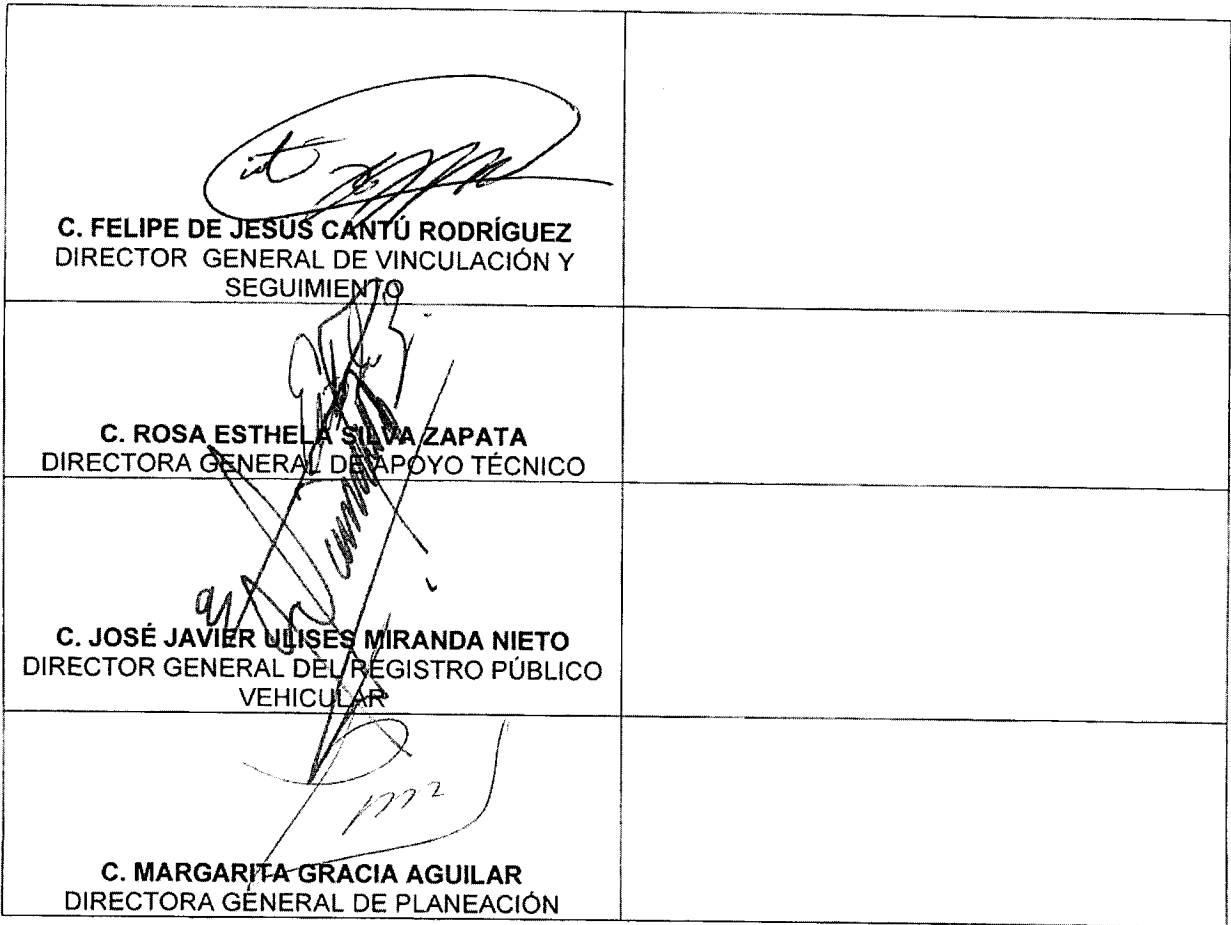 C. FELIPE DE JESÚS CANTÚ RODRÍGUEZ
DIRECTOR GENERAL DE VINCULACIÓN Y
SEGUIMIENTO
C. ROSA ESTHELA SILVA ZAPATA
DIRECTORA GENERAL DE APOYO TÉCNICO
C. JOSÉ JAVIER ULISES MIRANDA NIETO
DIRECTOR GENERAL DEL REGISTRO PÚBLICO
VEHICULAR
C. MARGARITA GRACIA AGUILAR
DIRECTORA GENERAL DE PLANEACIÓN